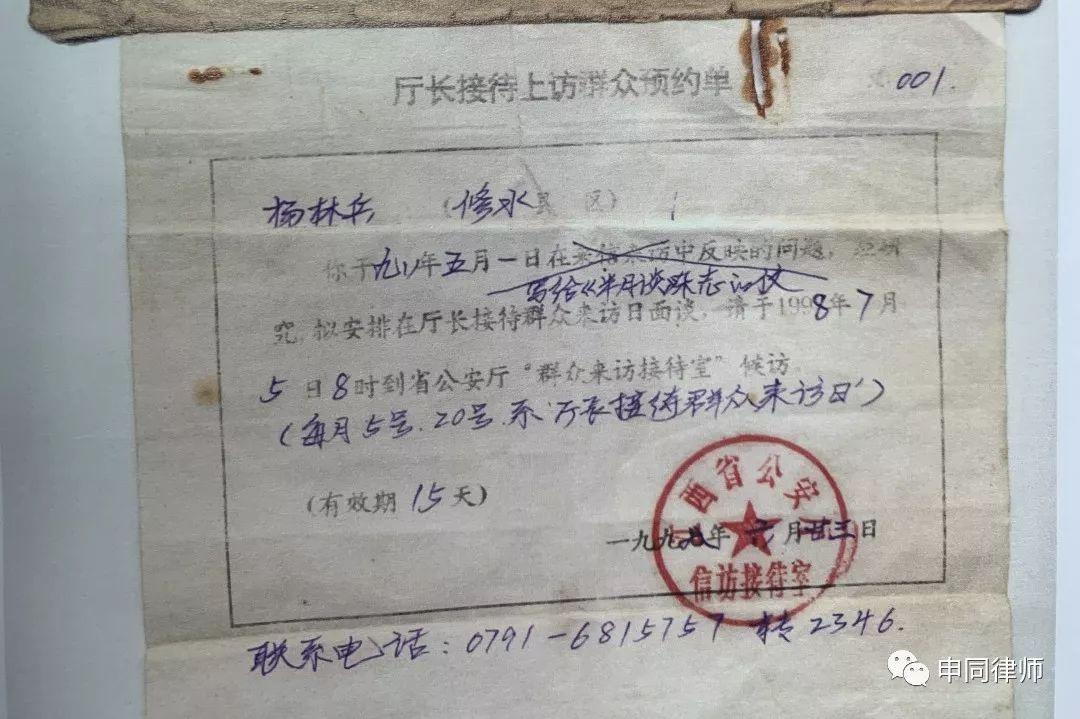 厅长接待上访群众预约单
001.
杨林兵 （修水县 区）
你于九八年五月一日在来信来访中反映的问题，经研
写给《半月谈》杂志的仅
究，拟安排在厅长接待群众来访日面谈，请于1998年7月
5日8时到省公安厅“群众来访接待室”候访。
（每月5号.20号.系‘厅长接待群众来访日’）
（有效期15天）
江西省公安厅
信访接待室
一九九八年六月廿三日
联系电话：0791-6815757 转2346.
申同律师